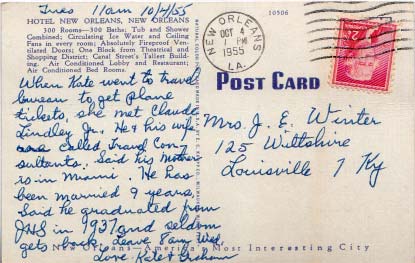 Tues 11am 10/4/55
HOTEL NEW ORLEANS, NEW ORLEANS
300 Rooms—300 Baths; Tub and Shower
Combined; Circulating Ice Water and Ceiling
Fans in every room; Absolutely Fireproof Ventilated
Doors. One Block from Theatrical and
Shopping District; Canal Street's Tallest Building.
Air Conditioned Lobby and Restaurant;
Air Conditioned Bed Rooms.
When Kate went to travel
bureau to get plane
tickets, she met Claude
Lindley Jr. He & his wife
are called Travel Con-
sultants. Said his Mother
is in Miami. He has
been married 9 years.
Said he graduated from
JHS in 1937 and seldom
gets back. Leave 8am Wed.
Love Kate & Graham
New Orleans—America's Most Interesting City
10506
NEW ORLEANS
OCT 4
1 PM
1955
LA.
POST CARD
Mrs. J. E. Winter
125 Wiltshire
Louisville 7 Ky